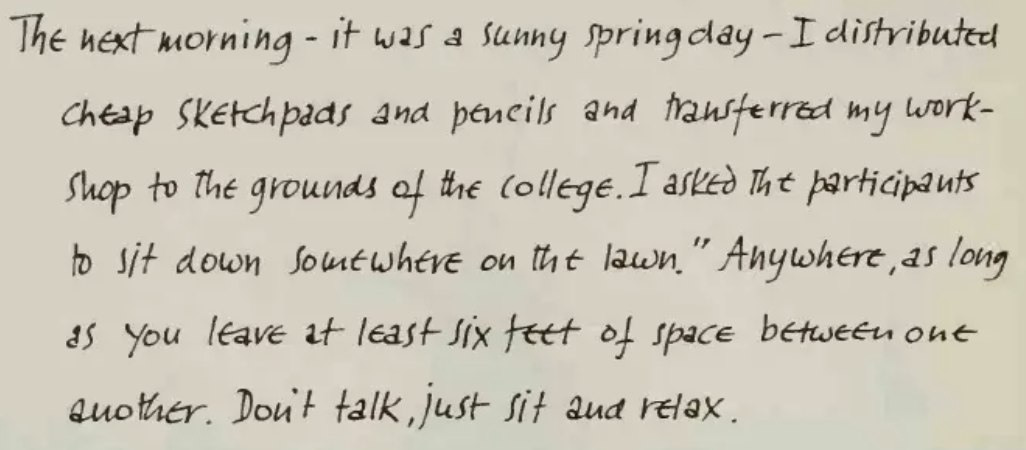 The next morning - it was a sunny spring day - I distributed
cheap sketchpads and pencils and transferred my work-
shop to the grounds of the college. I asked the participants
to sit down somewhere on the lawn. " Anywhere, as long
as you leave at least six feet of space between one
another. Don't talk, just sit and relax.